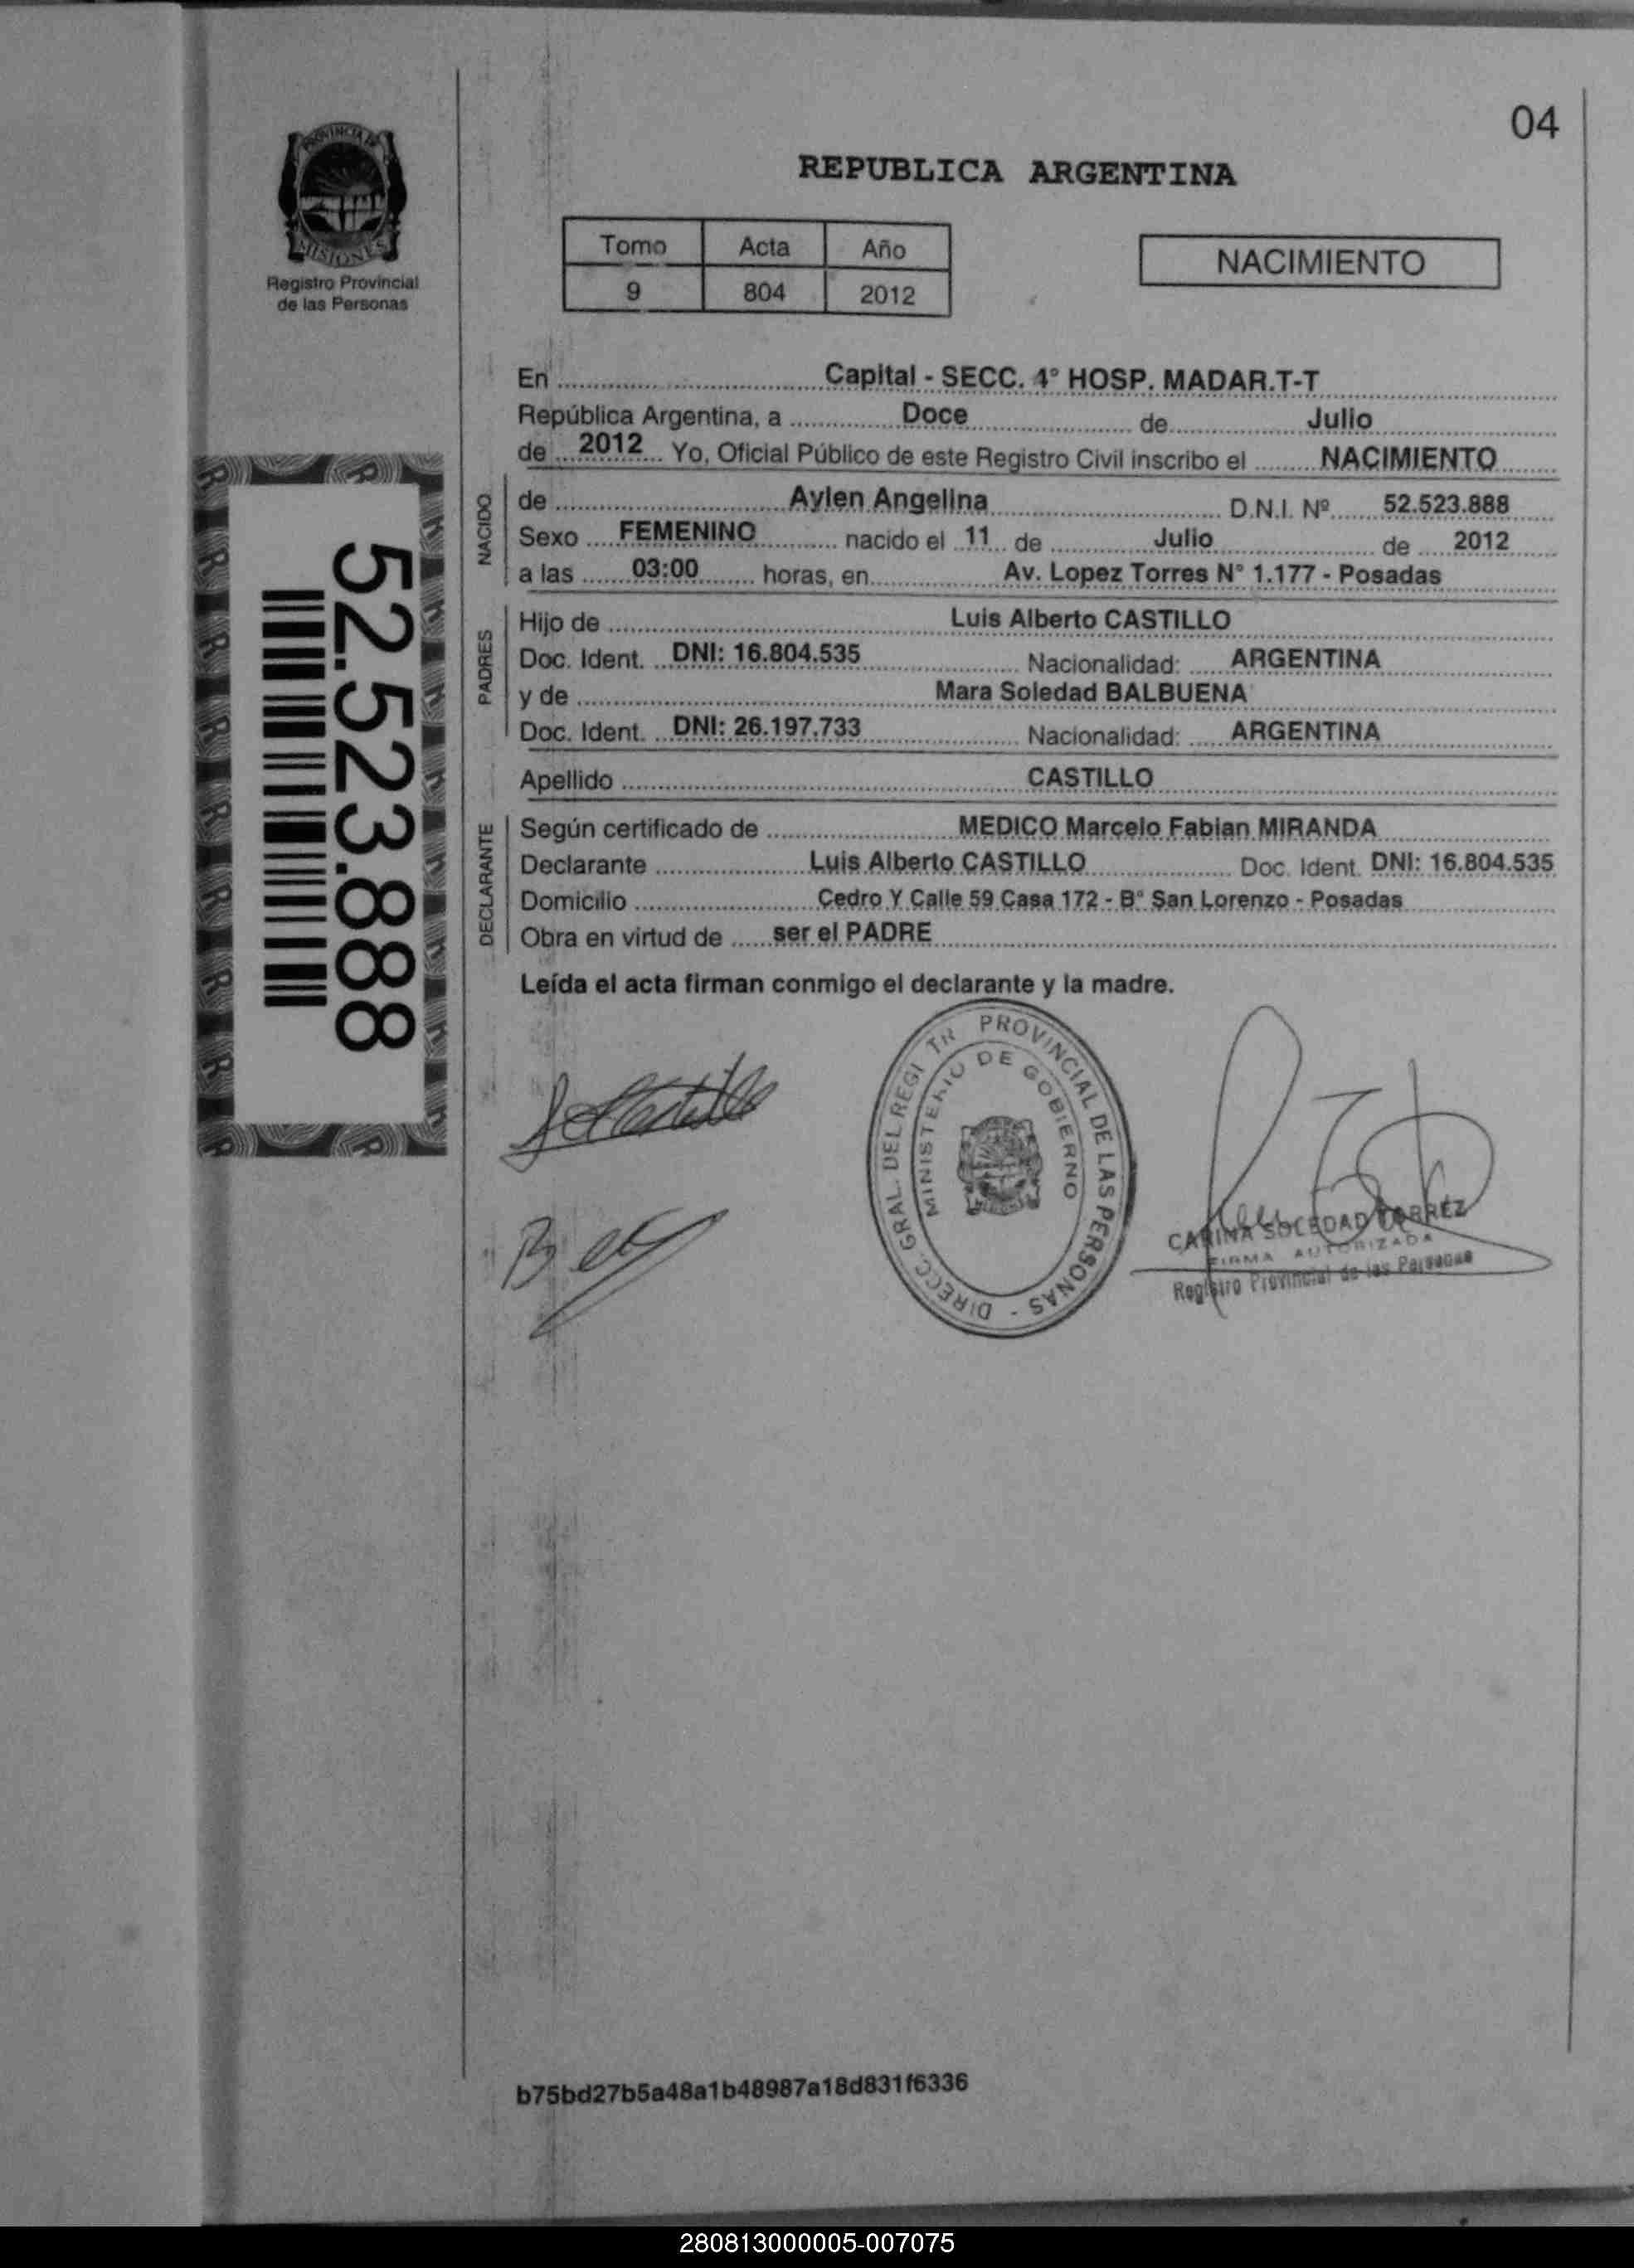 04
PROVINCIA DE
MISIONES
Registro Provincial
de las Personas
REPUBLICA ARGENTINA
Tomo Acta Año
9 804 2012
NACIMIENTO
En Capital - SECC. 4° HOSP. MADAR.T-T
República Argentina, a Doce de Julio
de 2012 Yo, Oficial Público de este Registro Civil inscribo el NACIMIENTO
NACIDO
de Aylen Angelina D.N.I. Nº 52.523.888
Sexo FEMENINO nacido el 11 de Julio de 2012
a las 03:00 horas, en Av. Lopez Torres N° 1.177 - Posadas
PADRES
Hijo de Luis Alberto CASTILLO
Doc. Ident. DNI: 16.804.535 Nacionalidad: ARGENTINA
y de Mara Soledad BALBUENA
Doc. Ident. DNI: 26.197.733 Nacionalidad: ARGENTINA
Apellido CASTILLO
DECLARANTE
Según certificado de MEDICO Marcelo Fabian MIRANDA
Declarante Luis Alberto CASTILLO Doc. Ident. DNI: 16.804.535
Domicilio Cedro Y Calle 59 Casa 172 - B° San Lorenzo - Posadas
Obra en virtud de ser el PADRE
Leída el acta firman conmigo el declarante y la madre.
52.523.888
DIRECC. GRAL. DEL REGI TR PROVINCIAL DE LAS PERSONAS -
MINISTERIO DE GOBIERNO
CARINA SOLEDAD
FIRMA AUTORIZADA
Registro Provincial de las Personas
b75bd27b5a48a1b48987a18d831f6336
280813000005-007075